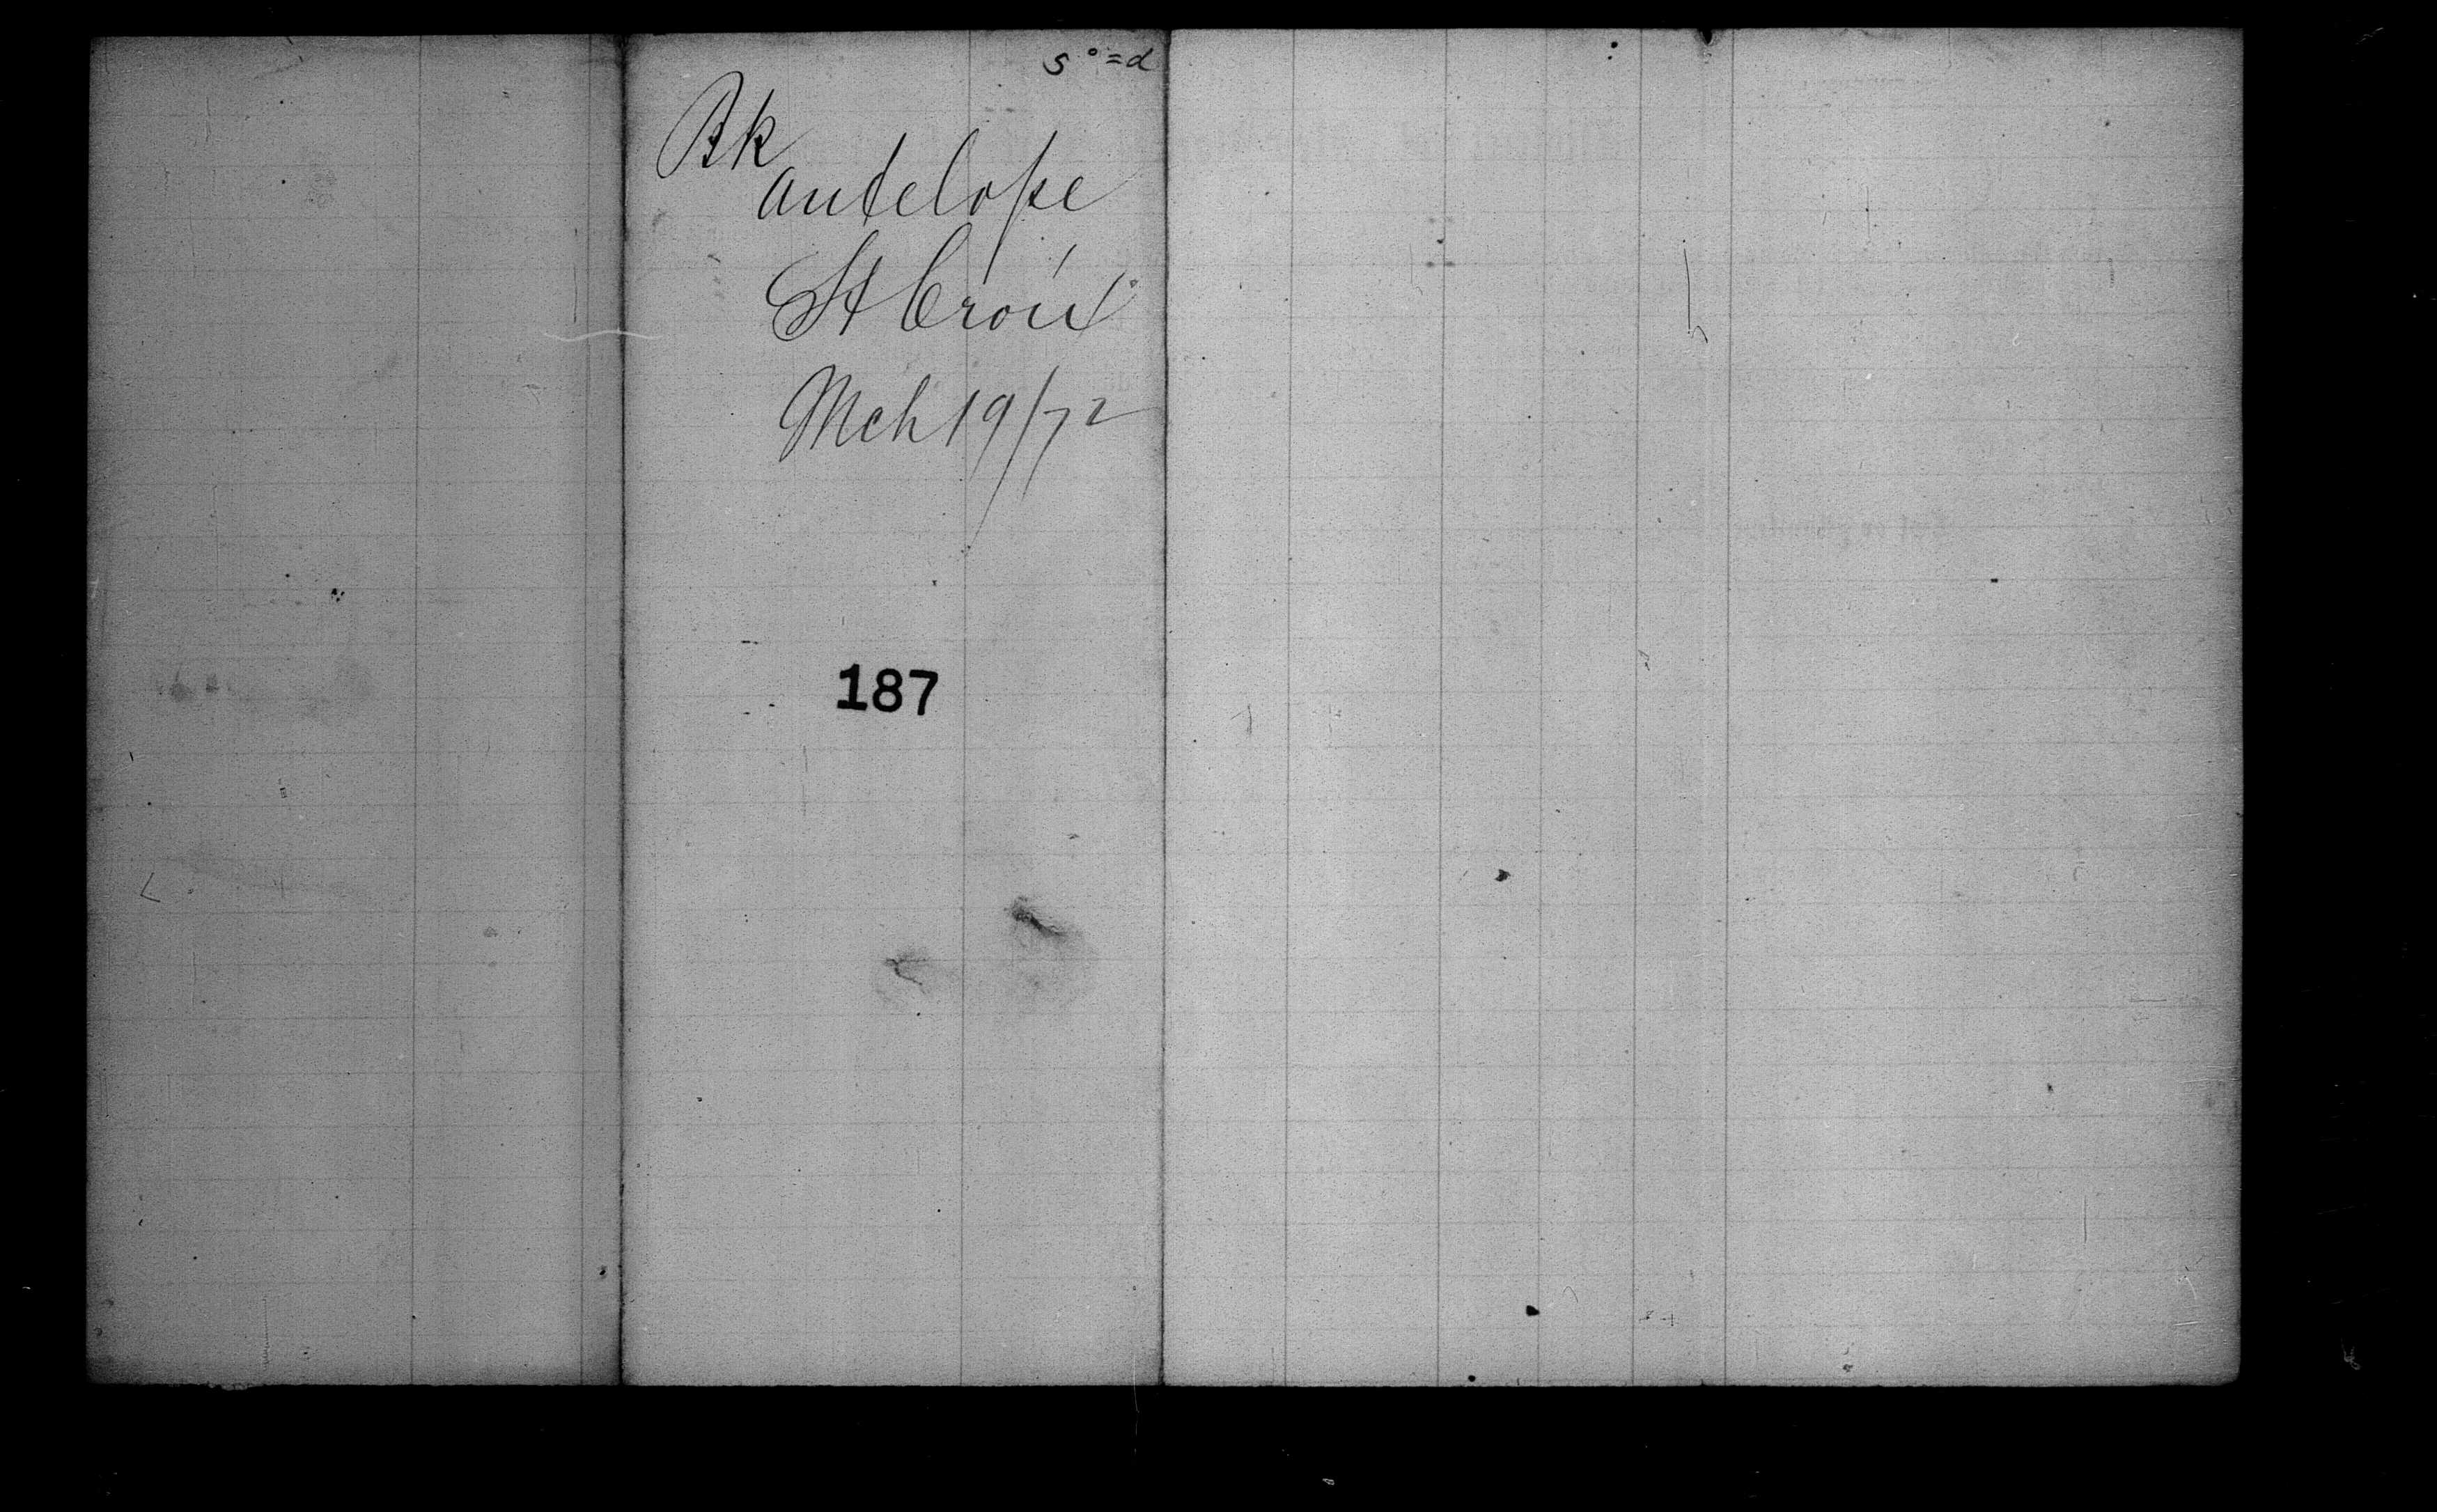 Bk
antelope
St Croix
Mch 19/72
187